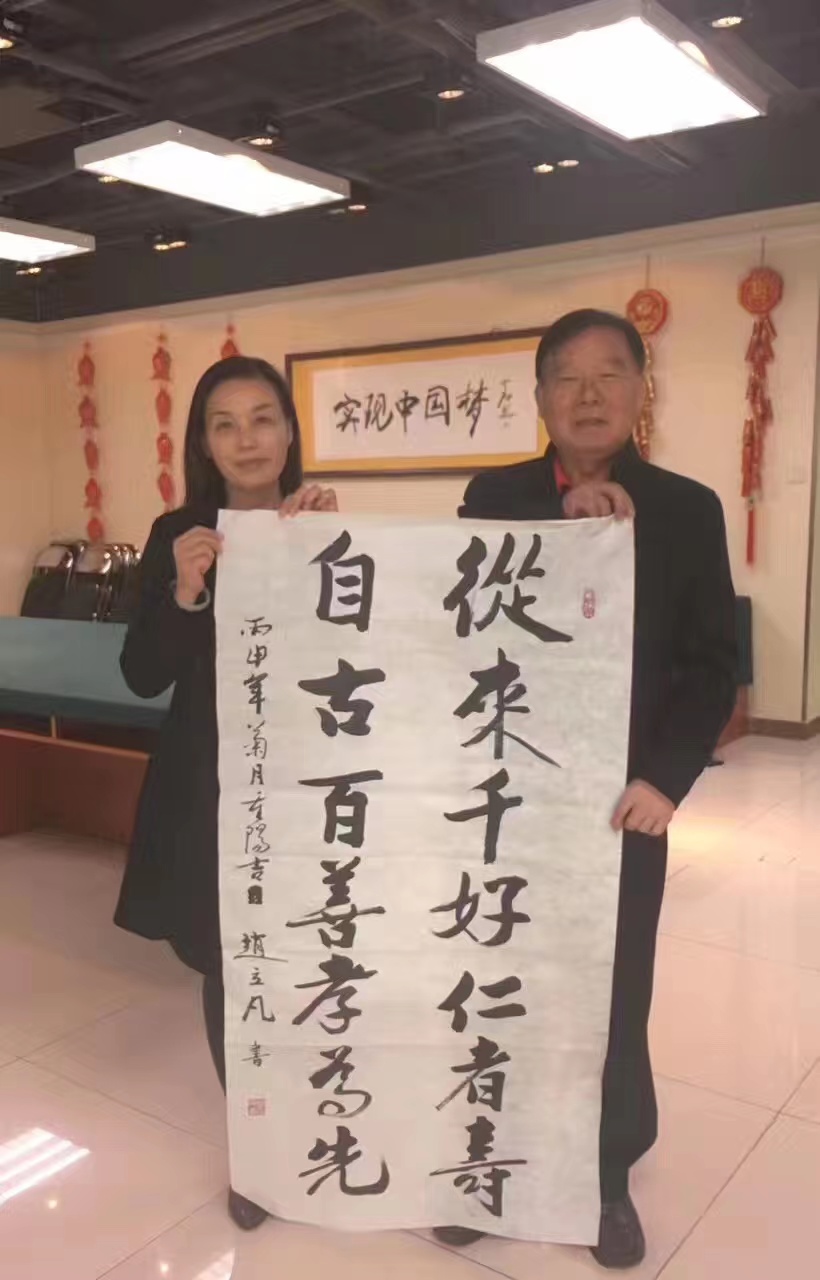 实现中国梦
從來千好仁者壽
自古百善孝為先
丙申年菊月重陽吉日
趙立凡書